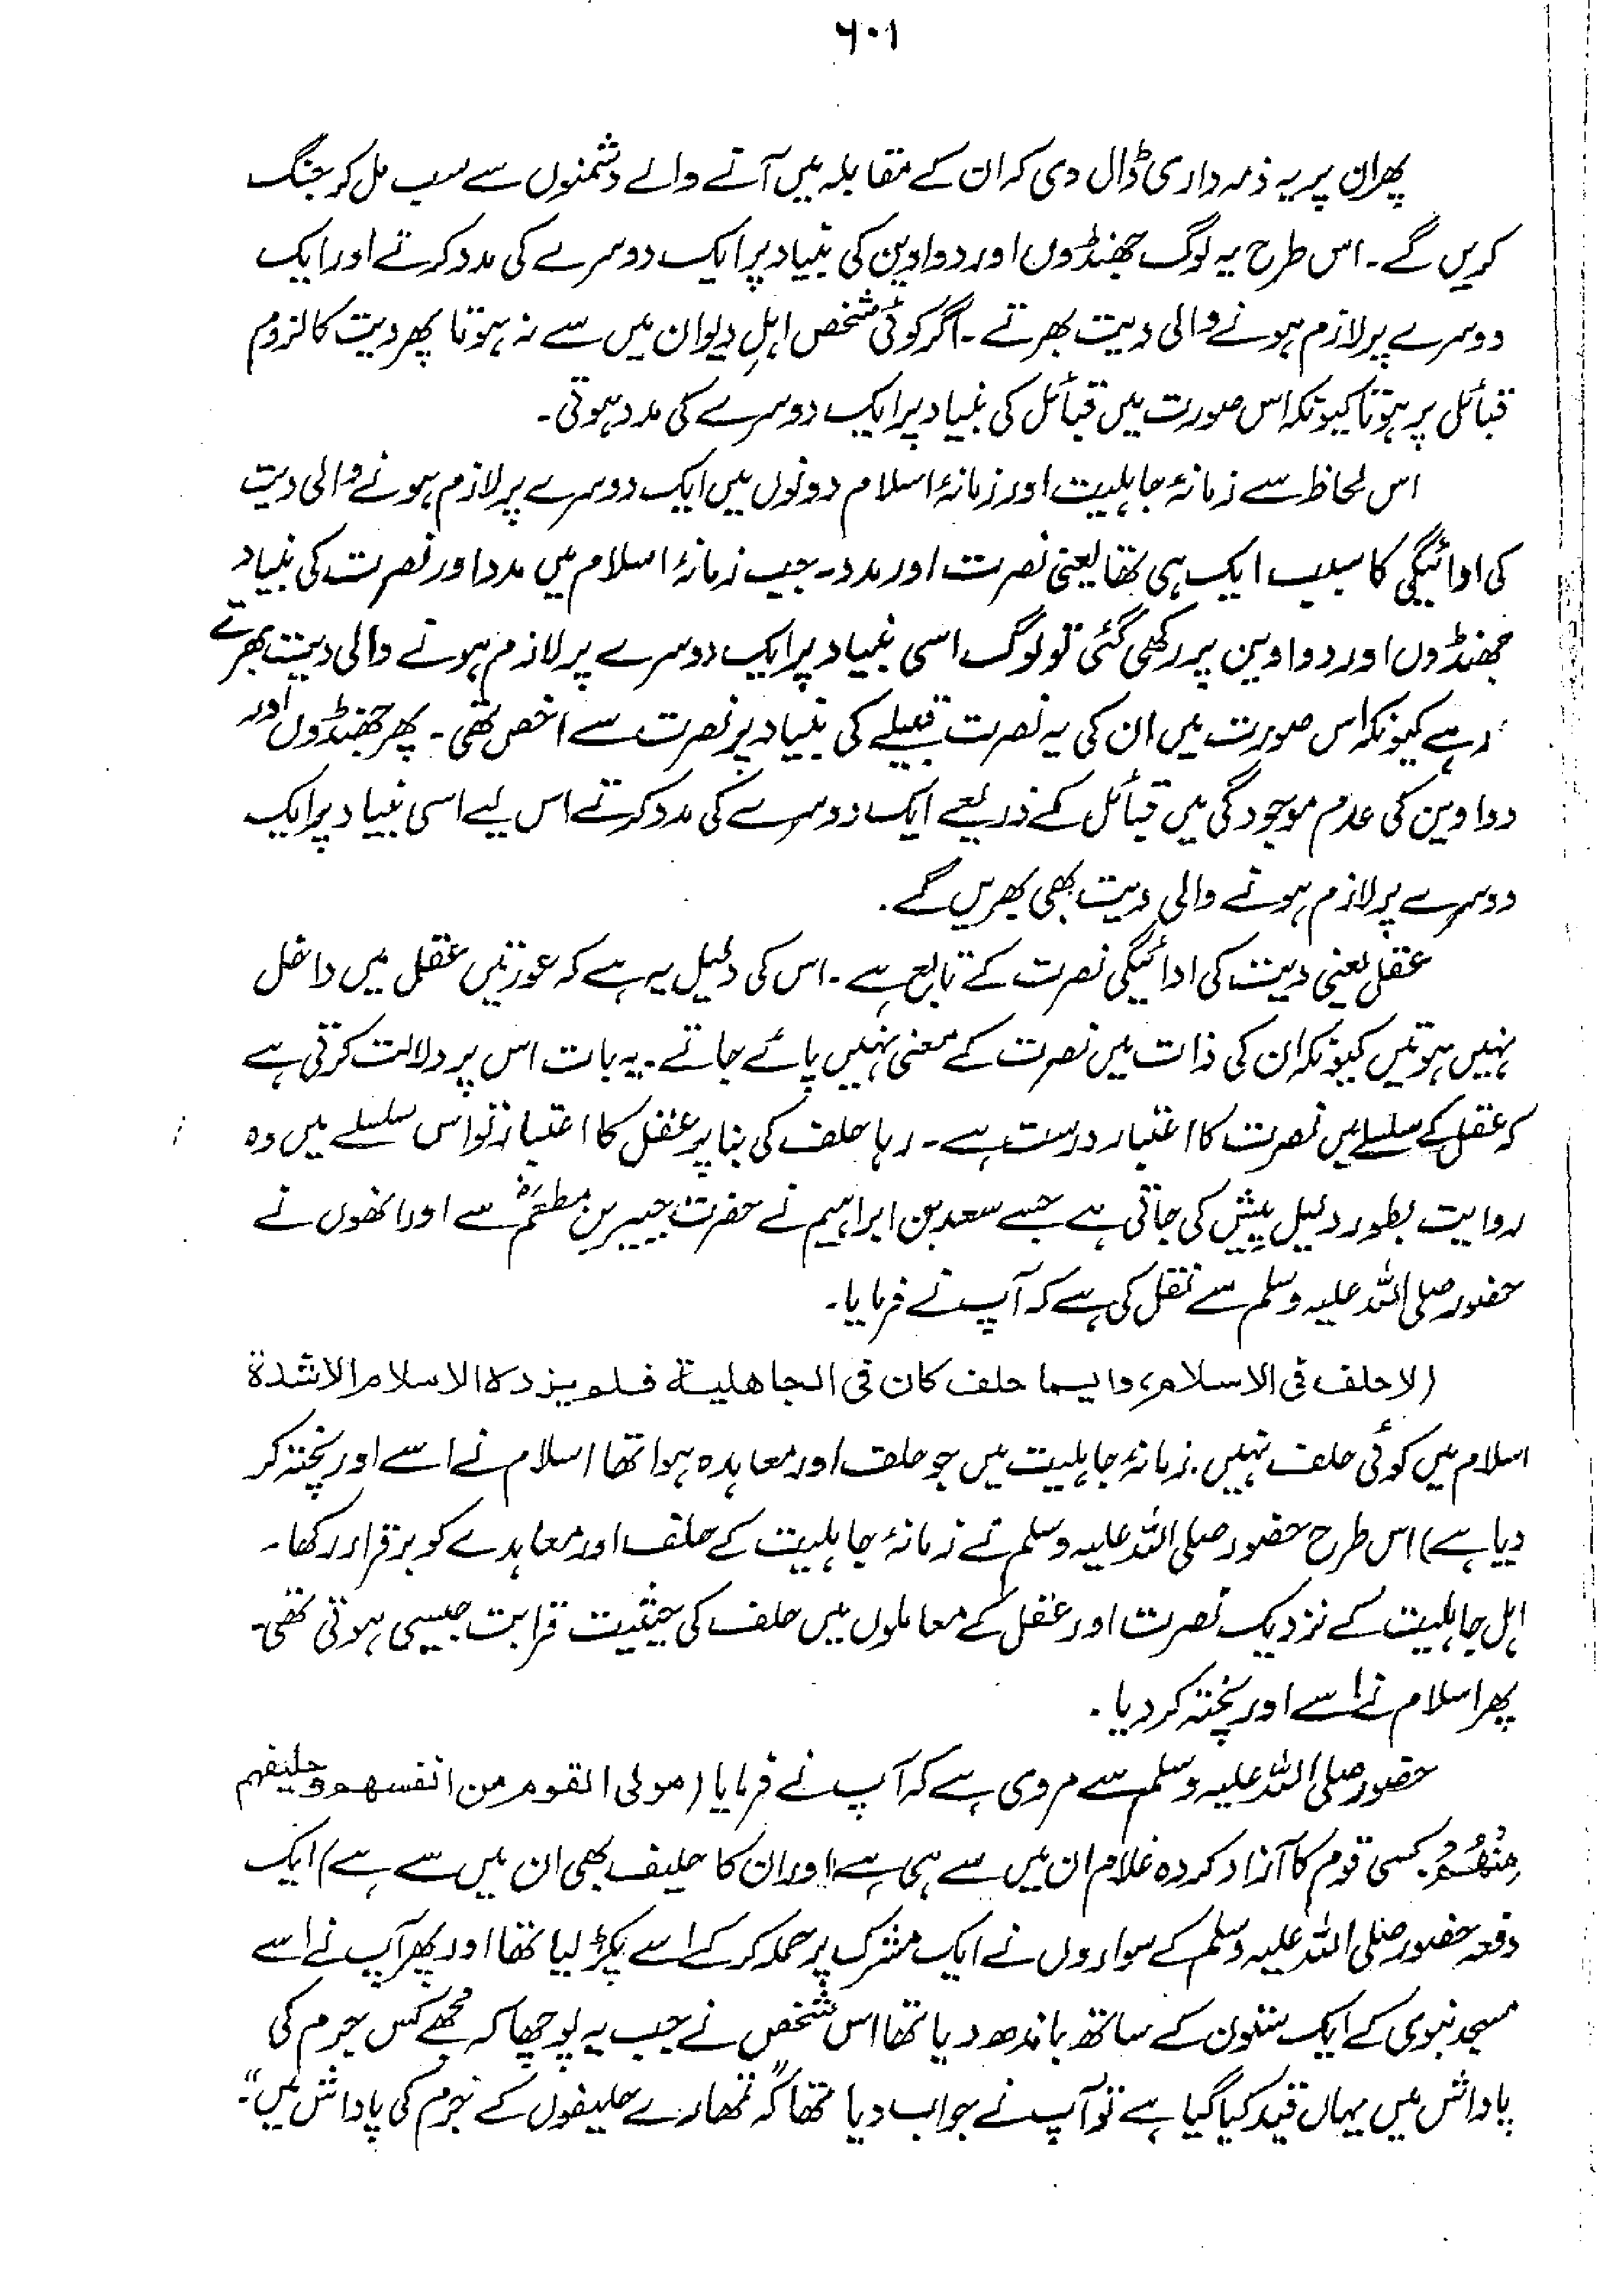 ۶۰۱
پھران پر یہ ذمہ داری ڈال دی کہ ان کے مقابلہ میں آنے والے دشمنوں سے سب مل کر جنگ
کریں گے۔ اس طرح یہ لوگ جھنڈوں اور دواوین کی بنیاد پر ایک دوسرے کی مدد کرتے اور ایک
دوسرے پر لازم ہونے والی دیت بھرتے۔ اگر کوئی شخص اہلِ دیوان میں سے نہ ہوتا پھر دیت کا لزوم
قبائل پر ہوتا کیونکہ اس صورت میں قبائل کی بنیاد پر ایک دوسرے کی مدد ہوتی۔
اس لحاظ سے زمانۂ جاہلیت اور زمانۂ اسلام دونوں میں ایک دوسرے پر لازم ہونے والی دیت
کی ادائیگی کا سبب ایک ہی تھا یعنی نصرت اور مدد۔ جب زمانۂ اسلام میں مدد اور نصرت کی بنیاد
جھنڈوں اور دواوین پر رکھی گئی تو لوگ اسی بنیاد پر ایک دوسرے پر لازم ہونے والی دیت بھرتے
رہے کیونکہ اس صورت میں ان کی یہ نصرت قبیلے کی بنیاد پر نصرت سے اخص تھی۔ پھر جھنڈوں اور
دواوین کی عدم موجودگی میں قبائل کے ذریعے ایک دوسرے کی مدد کرتے اس لیے اسی بنیاد پر ایک
دوسرے پر لازم ہونے والی دیت بھی بھریں گے۔
عقل یعنی دیت کی ادائیگی نصرت کے تابع ہے۔ اس کی دلیل یہ ہے کہ عورتیں عقل میں داخل
نہیں ہوتیں کیونکہ ان کی ذات میں نصرت کے معنی نہیں پائے جاتے۔ یہ بات اس پر دلالت کرتی ہے
کہ عقل کے سلسلے میں نصرت کا اعتبار درست ہے۔ رہا حلف کی بنا پر عقل کا اعتبار تو اس سلسلے میں وہ
روایت بطور دلیل پیش کی جاتی ہے جسے سعد بن ابراہیم نے حضرت جبیر بن مطعمؓ سے اور انھوں نے
حضور صلی اللہ علیہ وسلم سے نقل کی ہے کہ آپ نے فرمایا۔
(لا حلف فی الاسلام، وایما حلف کان فی الجاهلیة فلم یزدہ الاسلام الا شدة
اسلام میں کوئی حلف نہیں۔ زمانۂ جاہلیت میں جو حلف اور معاہدہ ہوا تھا اسلام نے اسے اور پختہ کر
دیا ہے) اس طرح حضور صلی اللہ علیہ وسلم نے زمانۂ جاہلیت کے حلف اور معاہدے کو برقرار رکھا۔
اہل جاہلیت کے نزدیک نصرت اور عقل کے معاملوں میں حلف کی حیثیت قرابت جیسی ہوتی تھی۔
پھر اسلام نے اسے اور پختہ کر دیا۔
حضور صلی اللہ علیہ وسلم سے مروی ہے کہ آپ نے فرمایا (مولی القوم من انفسهم وحلیفهم
مِنْهُمْ، کسی قوم کا آزاد کردہ غلام ان میں سے ہی ہے اور ان کا حلیف بھی ان میں سے ہے) ایک
دفعہ حضور صلی اللہ علیہ وسلم کے سواروں نے ایک مشرک پر حملہ کر کے اسے پکڑ لیا تھا اور پھر آپ نے اسے
مسجد نبوی کے ایک ستون کے ساتھ باندھ دیا تھا اس شخص نے جب یہ پوچھا کہ مجھے کس جرم کی
پاداش میں یہاں قید کیا گیا ہے تو آپ نے جواب دیا تھا کہ "تمھارے حلیفوں کے جرم کی پاداش میں"۔